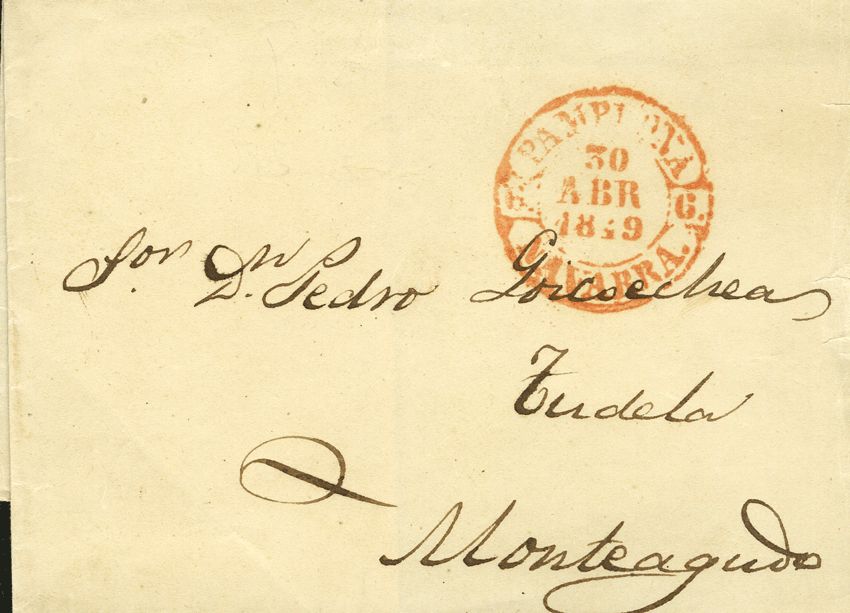 PAMPLONA
30
ABR
1849
G. G.
NAVARRA.
Sor. Dn. Pedro Goicoechea
Tudela
Monteagudo